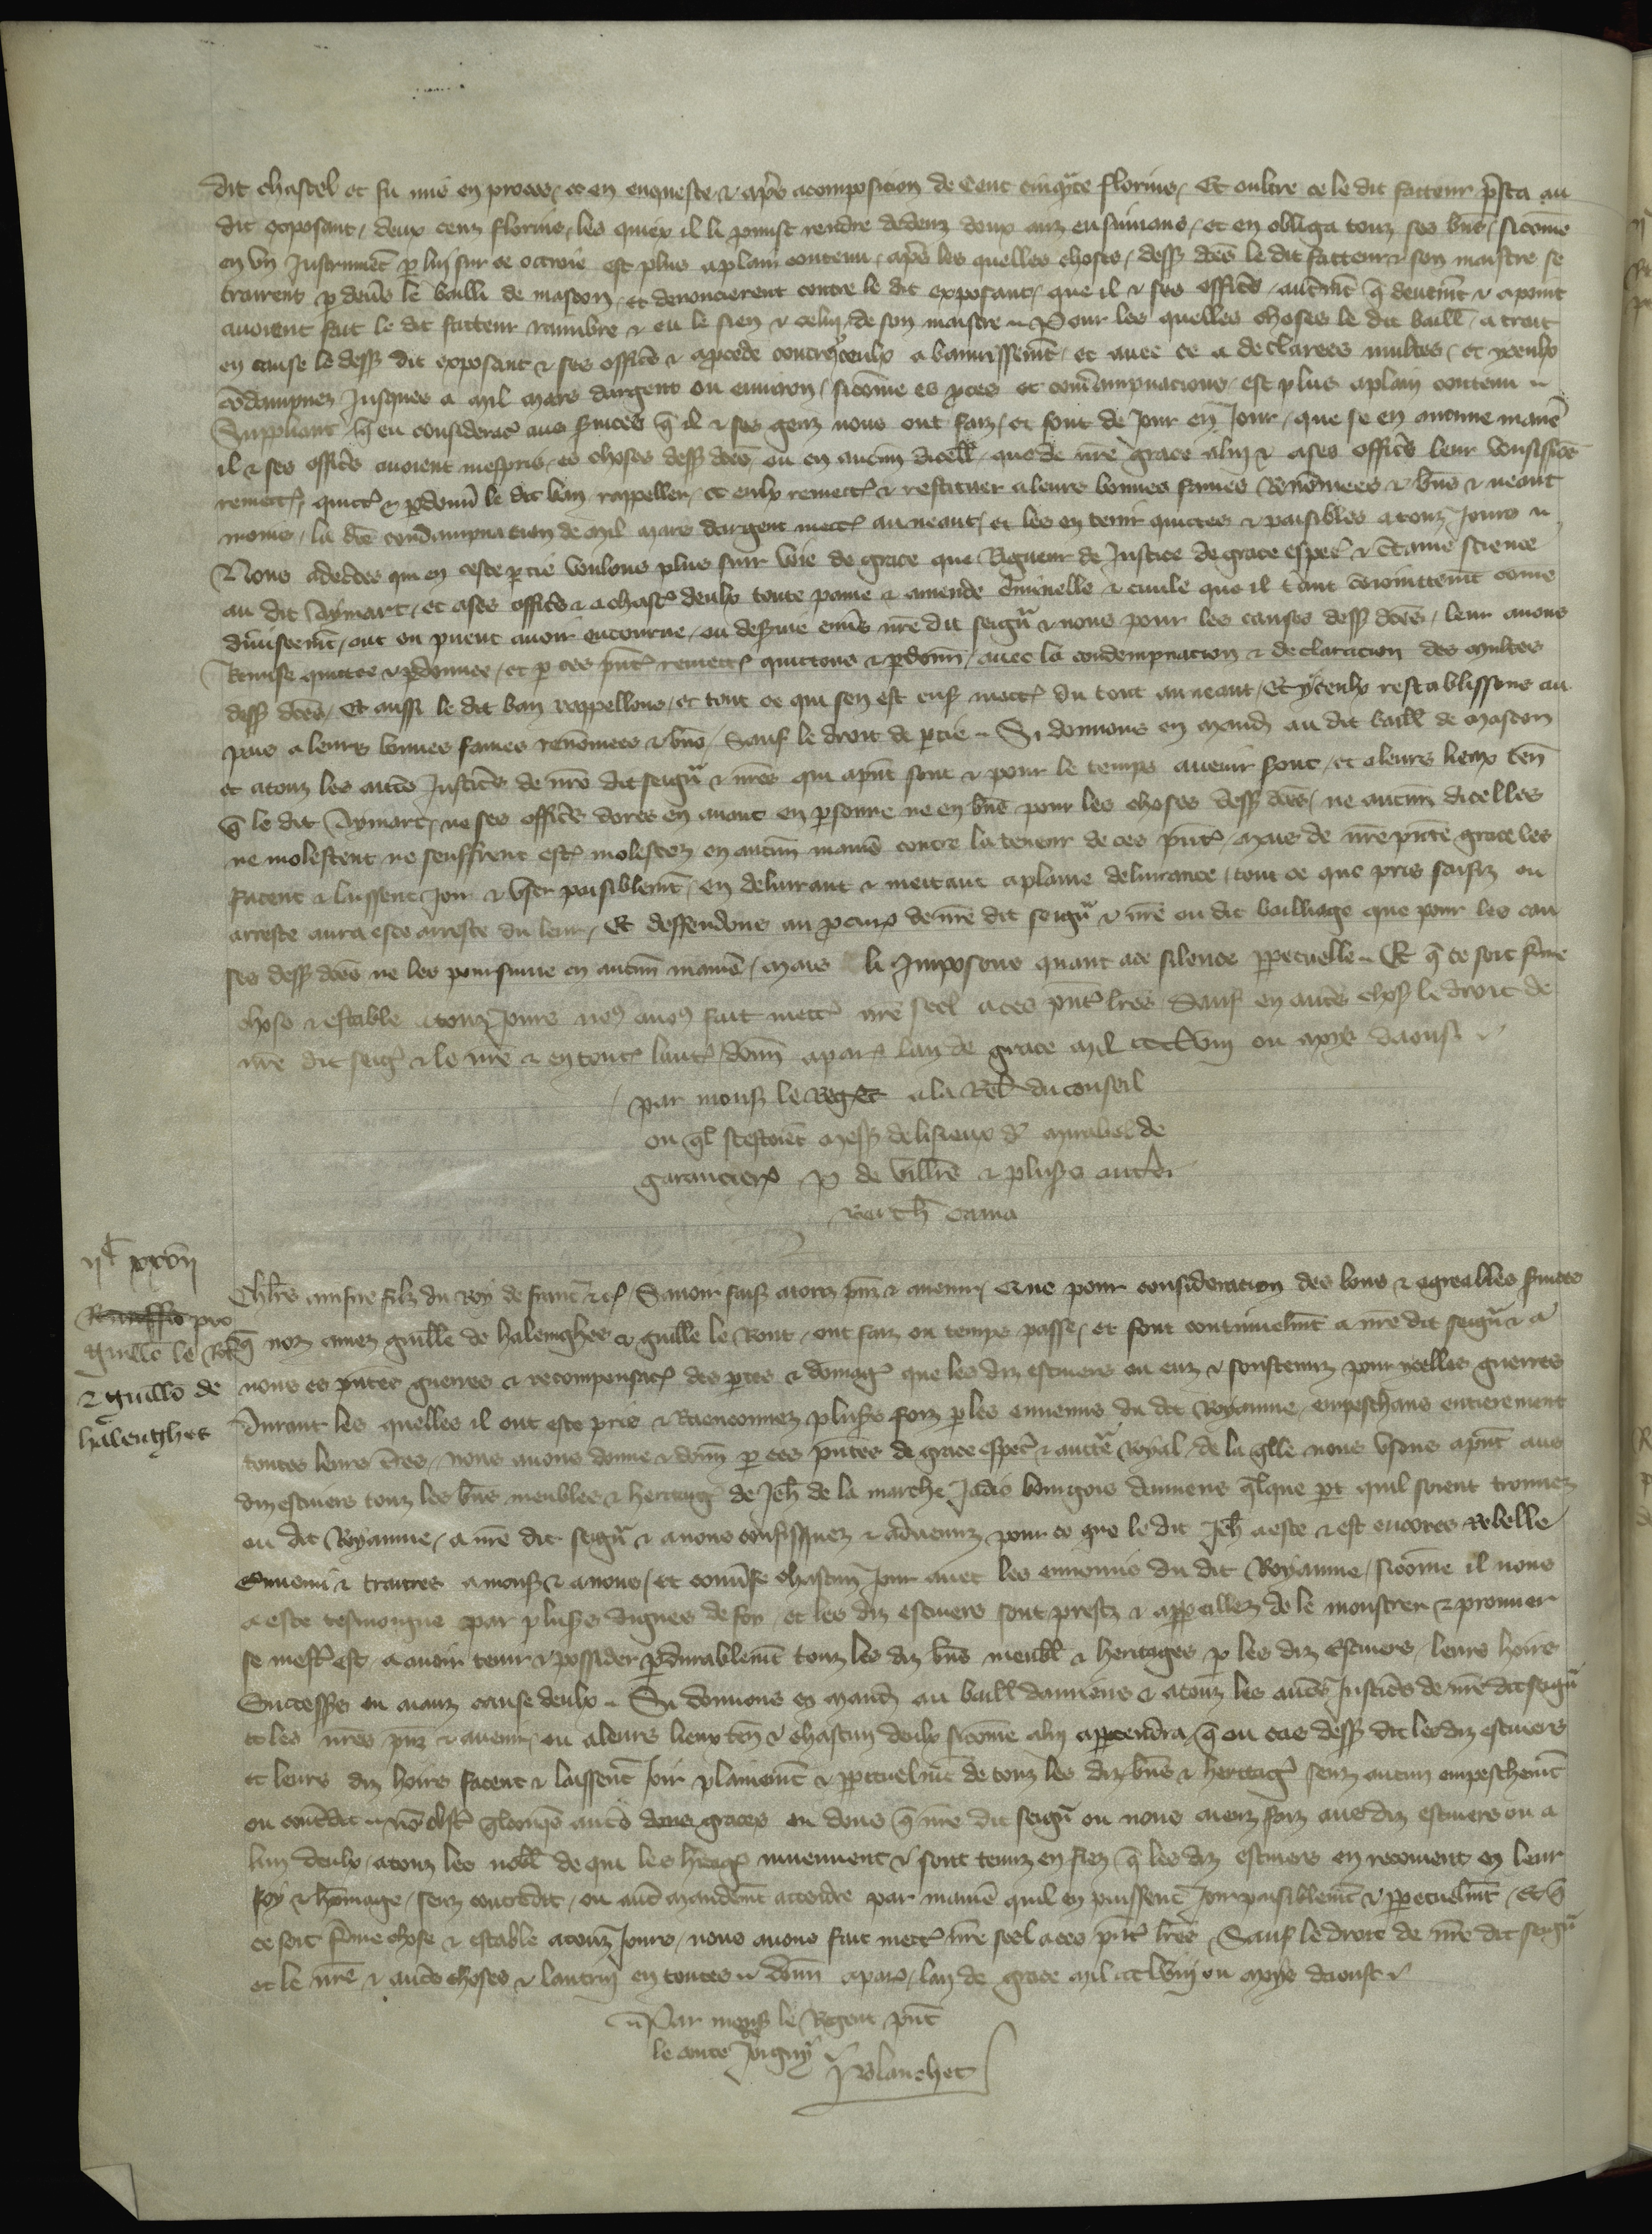 dit chastel et fu mis en proces, et en enqueste & apres acomposicion de Cent cinqte florins, Et oultre ce le dit facteur presta au
dit exposant, deux cenz florins, les quiex il li promist rendre dedenz deux anz ensuivans, et en obliga touz ses bns, sicome
en un Instrument p lui sur ce octroie est plus aplain contenu, apres les quelles choses, dess dces le dit facteur & son maistre se
trairent p devs le bailli de mascon, et denoncierent contre le dit exposant, que il & ses offics, autmt q deuemt & apoint
avoient fait le dit facteur rambre & eu le sien & celui de son maistre Pour les quelles choses le dit baill, a trait
en cause le dess dit exposant & ses offics & apcede contre yceulx a banissemt, et avec ce a declarees multes, et yceulx
codampnez Jusques a mil mars dargent ou environ, sicome es pces et condampnacions, est plus aplain contenu
Suppliant q en consideracion aus svices q il & ses genz nous ont faiz, et font de Jour en Jour, que se en aucune manie
il & ses offics avoient mespris, es choses dess dces, ou en aucun dicell, que de nre grace alui & a ses offics leur voulsissies
remettre, quitter & pdonner le dit ban rappeller, et eulx remettre & restituer a leurs bonnes fames Renomees & bns & neant
moins, la dce condampnacion de mil mars dargent mettre au neant, et les en tenir quittes & paisibles atouz Jours
Nous adecertes qui en ceste ptie voulons plus suir voie de grace que Rigueur de Justice de grace espcal & ctaine science
au dit Aymart, et ases offics & a chascun deulx toute paine & amende criminelle & civile que il tant comittemt come
divisemt, ont ou puent avoir encourue, ou desservie envs nre dit seigr & nous pour les causes dess dces, leur avons
Remise quittee & pdonnee, et p ces pntes remettons quittons & pdonn, avec la condempnacion & declaracion des multes
dess dces, Et aussi le dit ban rappellons, et tout ce qui sen est ensui mettons du tout au neant, Et yceulx restablissons au
pais a leurs bonnes fames renomees & bns, Sauf le droit de ptie Si donnons en mand au dit baill de mascon
et atouz les autres Justics de nre dit seigr & nres qui apnt sont & pour le temps avenir sont, et a leurs lieux ten
q le dit Aymart, ne ses offics dores en avant en psonne ne en bns pour les choses dess dces, ne aucun dicelles
ne molestent ne seuffrent estre molestez en aucun manie contre la teneur de ces pntes, Mais de nre pnte grace les
facent & laissent Joir & user paisiblemt, en delivrant & mettant aplaine delivrance, tout ce que pris saisiz ou
arreste aura este arreste du leur, Et deffendons au pcureur de nre dit seigr & nre ou dit bailliage que pour les cau
ses dess dces ne les poursuive en aucun manie, Mais li Imposons quant ace silence ppetuelle Et q ce soit ferme
chose & estable atouz Jours nous avons fait mettre nre seel a ces pntes lres Sauf en autres choses le droit de
nre dit seigr & le nre & en toutes lautrui donn a paris lan de grace mil CCCLVIII ou mois daoust
par monss le Regent a la Relacion du conseil
ou ql estoient mess de lisieux mirabel de
garancieres P de villers & plusrs autres
Barth Cama
IIC XXVII
Challes ainsne filz du Roy de france etc, Savoir faiss atouz pnz & avenir, Que pour consideracion des bons & agreables svices
pro
Guillo le Rout
& Guillo de
halenghes
q noz amez guille de halenghes & guille le Rout, ont faiz ou temps passe, et font continuelmt a nre dit seigr & a
nous es pntes guerres & recompensacion des ptes & domages que les diz escuiers ont euz & soustenuz pour ycelles guerres
Durant les quelles il ont este pris & Raenconnez plusrs foiz p les ennemis du dit Royaume, empeschans entierement
toutes leurs tres, Nous avons donne & donn p ces pntes de grace espcal & auctte Royal, de la qlle nous usons apnt aus
diz escuiers touz les bns meubles & heritages de Jeh de la marche Jadis bourgois damiens qlque pt quil soient trouvez
ou dit Royaume, a nre dit seigr & a nous confisquez & advenuz pour ce que le dit Jeh a este & est encores Rebelle
Ennemi & traitres a monss & a nous, et converse chascun Jour avec les ennemis du dit Royaume, sicome il nous
a este tesmoigne par plusrs dignes de foy, et les diz escuiers sont prestz & appeillez de le monstrer & prouver
se mestier est, a avoir tenir & possider pdurablemt touz les diz bns meubl & heritages p les diz Escuiers, leurs hoirs
Successrs ou aianz cause deulx Si donnons en mand au baill damiens & atouz les autres Justics de nre dit seigr
et les nres pnz & avenir, ou a leurs lieux ten & chascun deulx sicome a lui apptendra, q ou cas dess dit les diz escuiers
et leurs diz hoirs facent & laissent Joir plainemt & ppetuelmt de touz les diz bns & heritages senz aucun empeschemt
ou contredit non obstant qlconques autres dons graces ou dons q nre dit seigr ou nous aienz faiz aus diz escuiers ou a
lun deulx, atouz les nobl de qui les heritages meuvent & sont tenuz en fiez q les diz escuiers en recoivent en leur
foy & homage, senz contredit, ou autre mandemt attendre par manie quil en puissent Joir paisiblemt & ppetuelmt, Et q
ce soit ferme chose & estable atouz Jours, nous avons fait mettre nre seel a ces pntes lres, Sauf le droit de nre dit seigr
et le nre & autres choses & lautrui en toutes donn a paris, lan de grace mil CCC LVIII ou mois daoust
Par monss le Regent pnt
le conte de Joigny P Blanchet